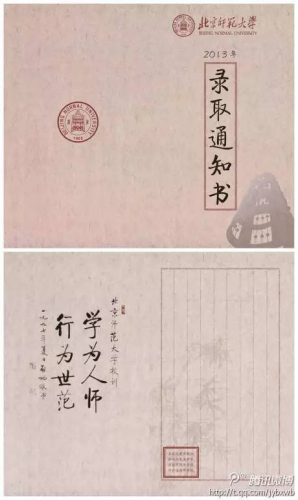 北京师范大学
BEIJING NORMAL UNIVERSITY
2013年
录取通知书
BEIJING NORMAL UNIVERSITY
1902
北京师范大学校训
学为人师
行为世范
一九九七年夏日启功敬书
腾讯微博
http://t.qq.com/jybxwb